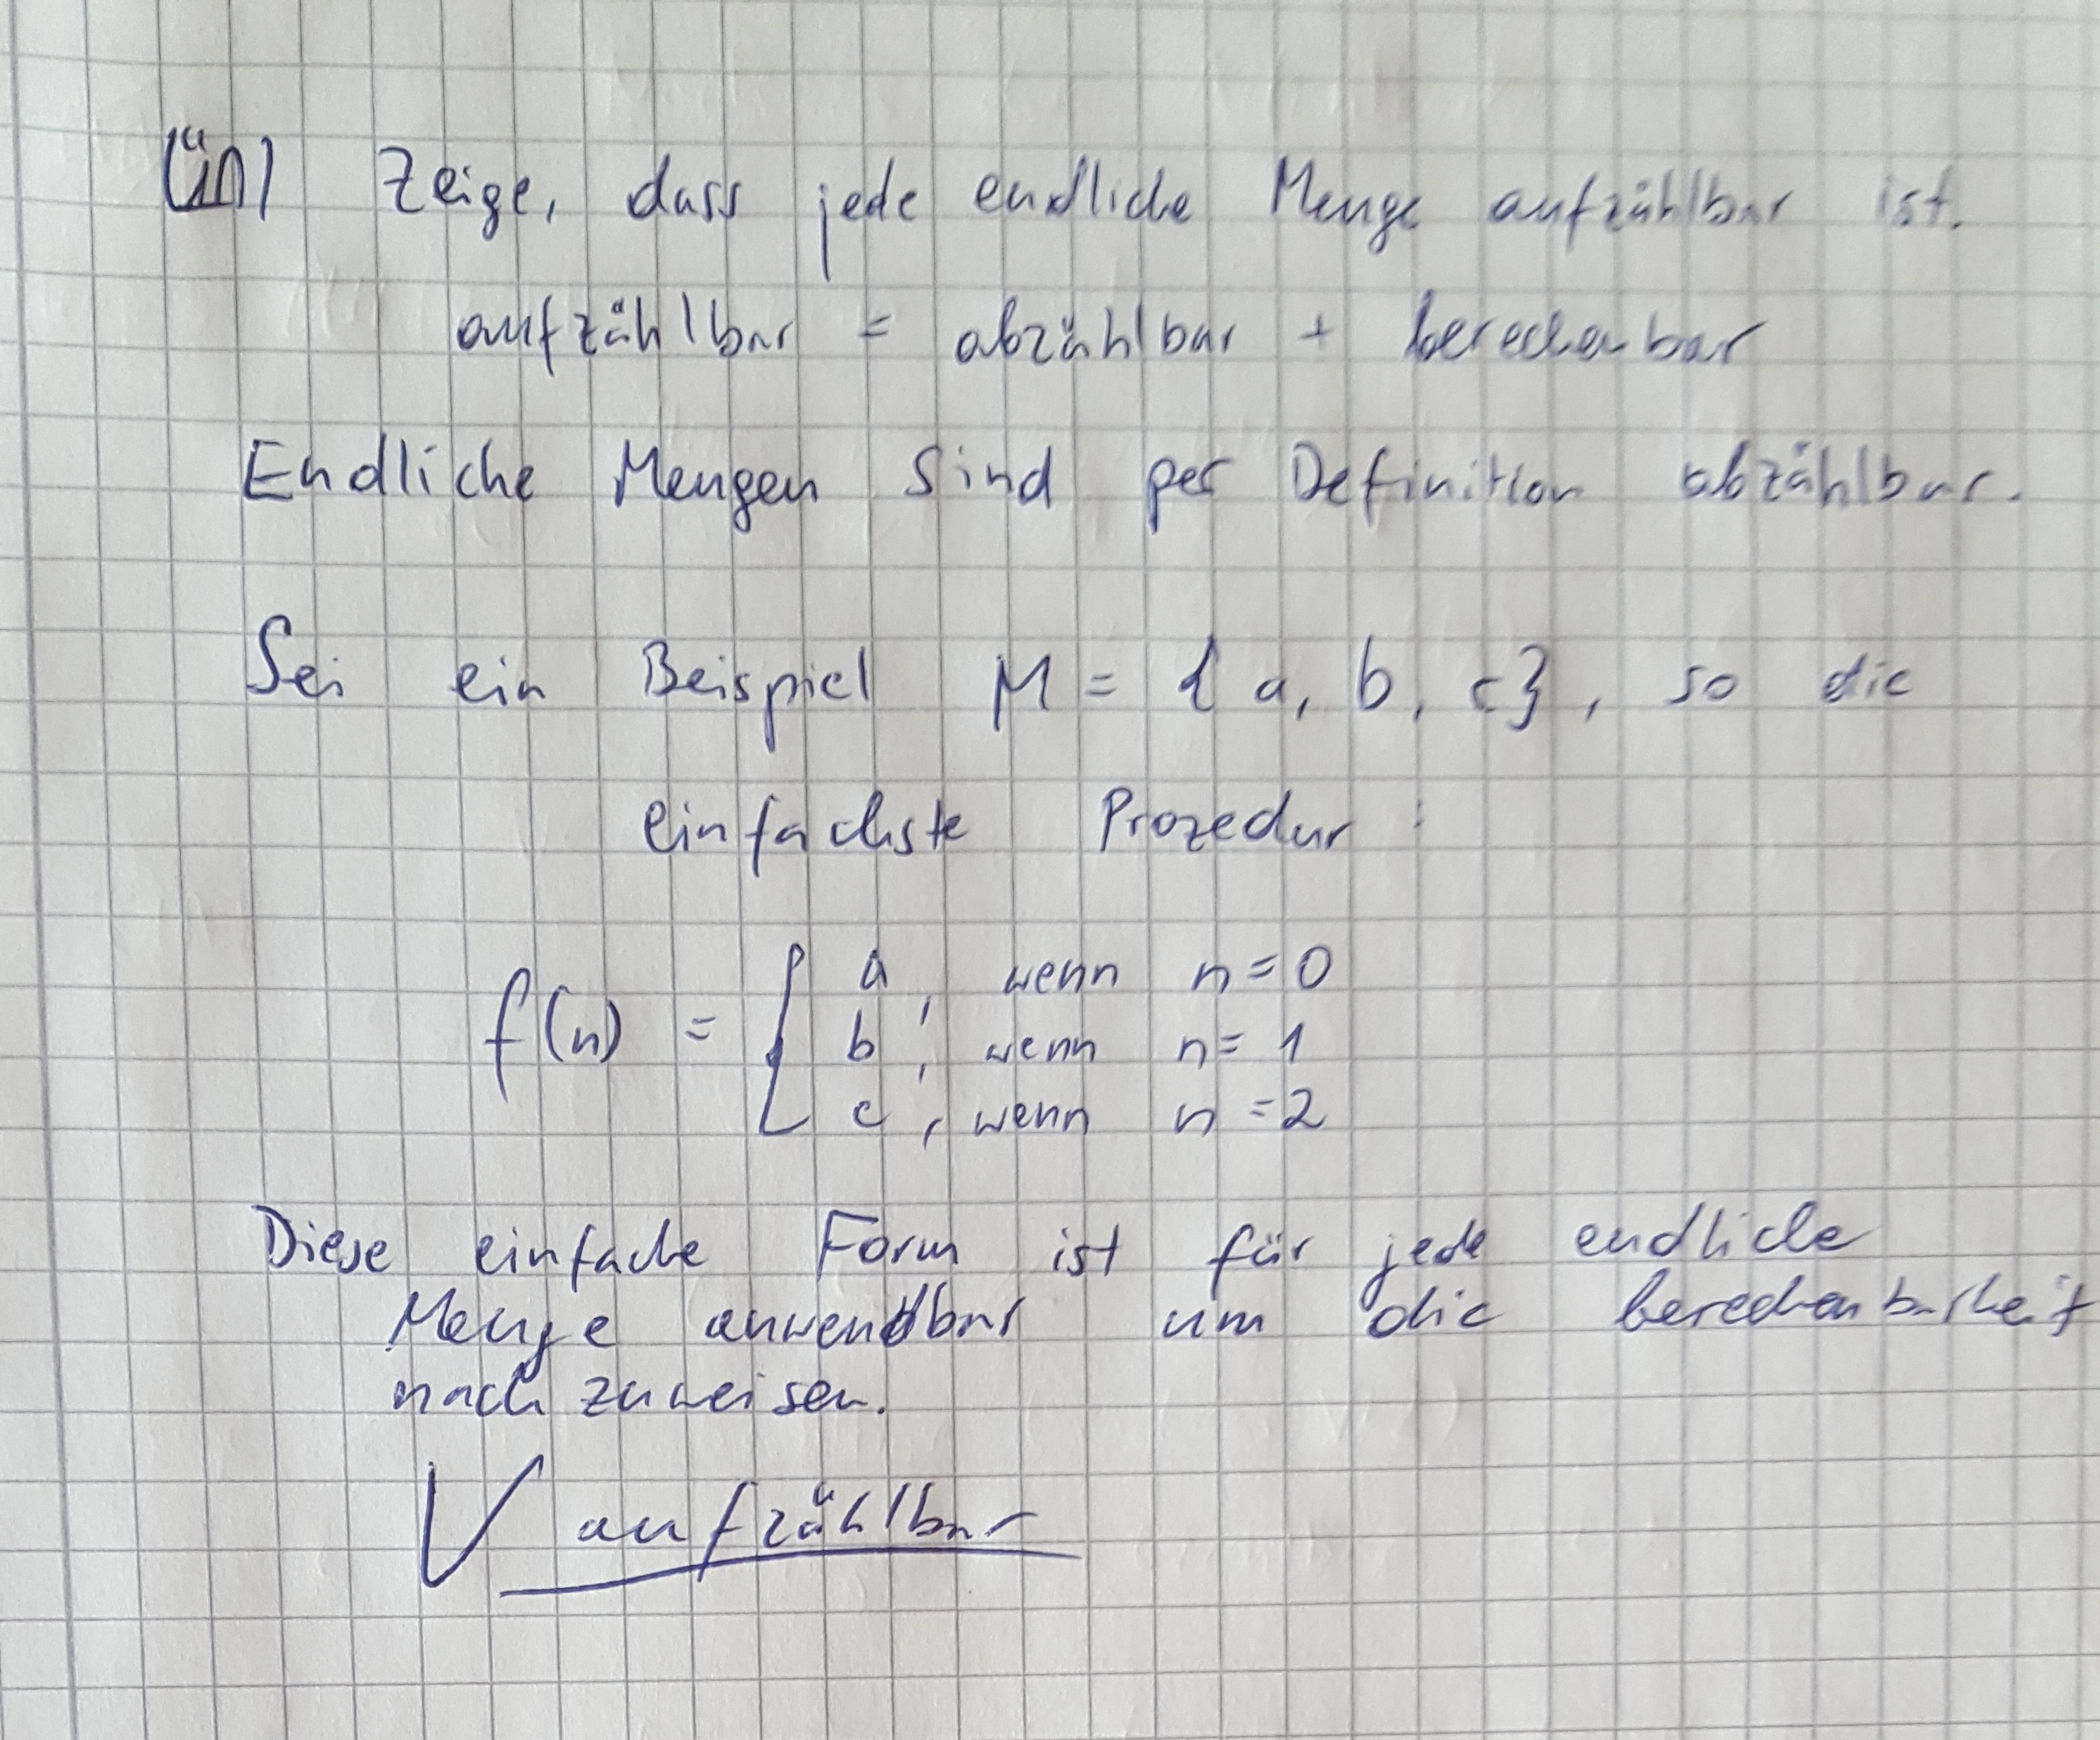 Zeige, dass jede endliche Menge aufzählbar ist.
aufzählbar = abzählbar + berechenbar
Endliche Mengen sind per Definition abzählbar.
Sei ein Beispiel M = {a, b, c}, so die
einfachste Prozedur:
f(n) = { a, wenn n = 0
b, wenn n = 1
c, wenn n = 2
Diese einfache Form ist für jede endliche
Menge anwendbar um die berechenbarkeit
nachzuweisen.
√ aufzählbar